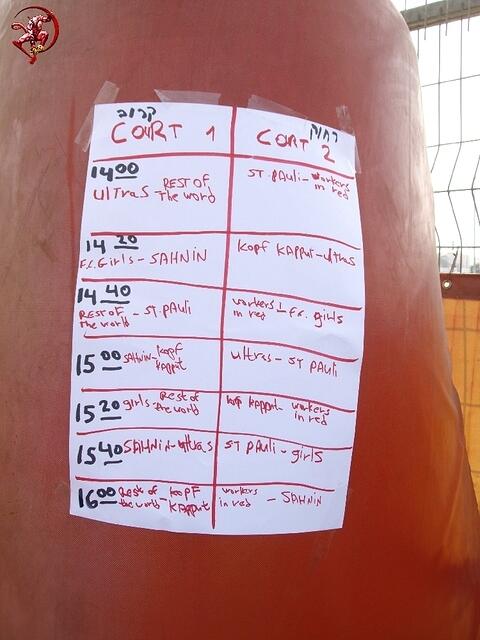 קרוב
COURT 1
רחוק
CORT 2
14 00
ULTRAS REST OF
THE WORD
ST. PAULI - WORKERS
in red
14 20
F.C. GIRLS - SAHNIN
KOPF KAPPUT - ULTRAS
14 40
REST OF - ST. PAULI
the world
WORKERS - F.C. GIRLS
in red
15 00
SAHNIN - KOPF
KAPPUT
ULTRAS - ST PAULI
15 20
girls REST OF
the world
KOPF KAPPUT - WORKERS
in red
15 40
SAHNIN - ULTRAS
ST PAULI - GIRLS
16 00
REST OF - KOPF
the world KAPPUT
WORKERS - SAHNIN
in red